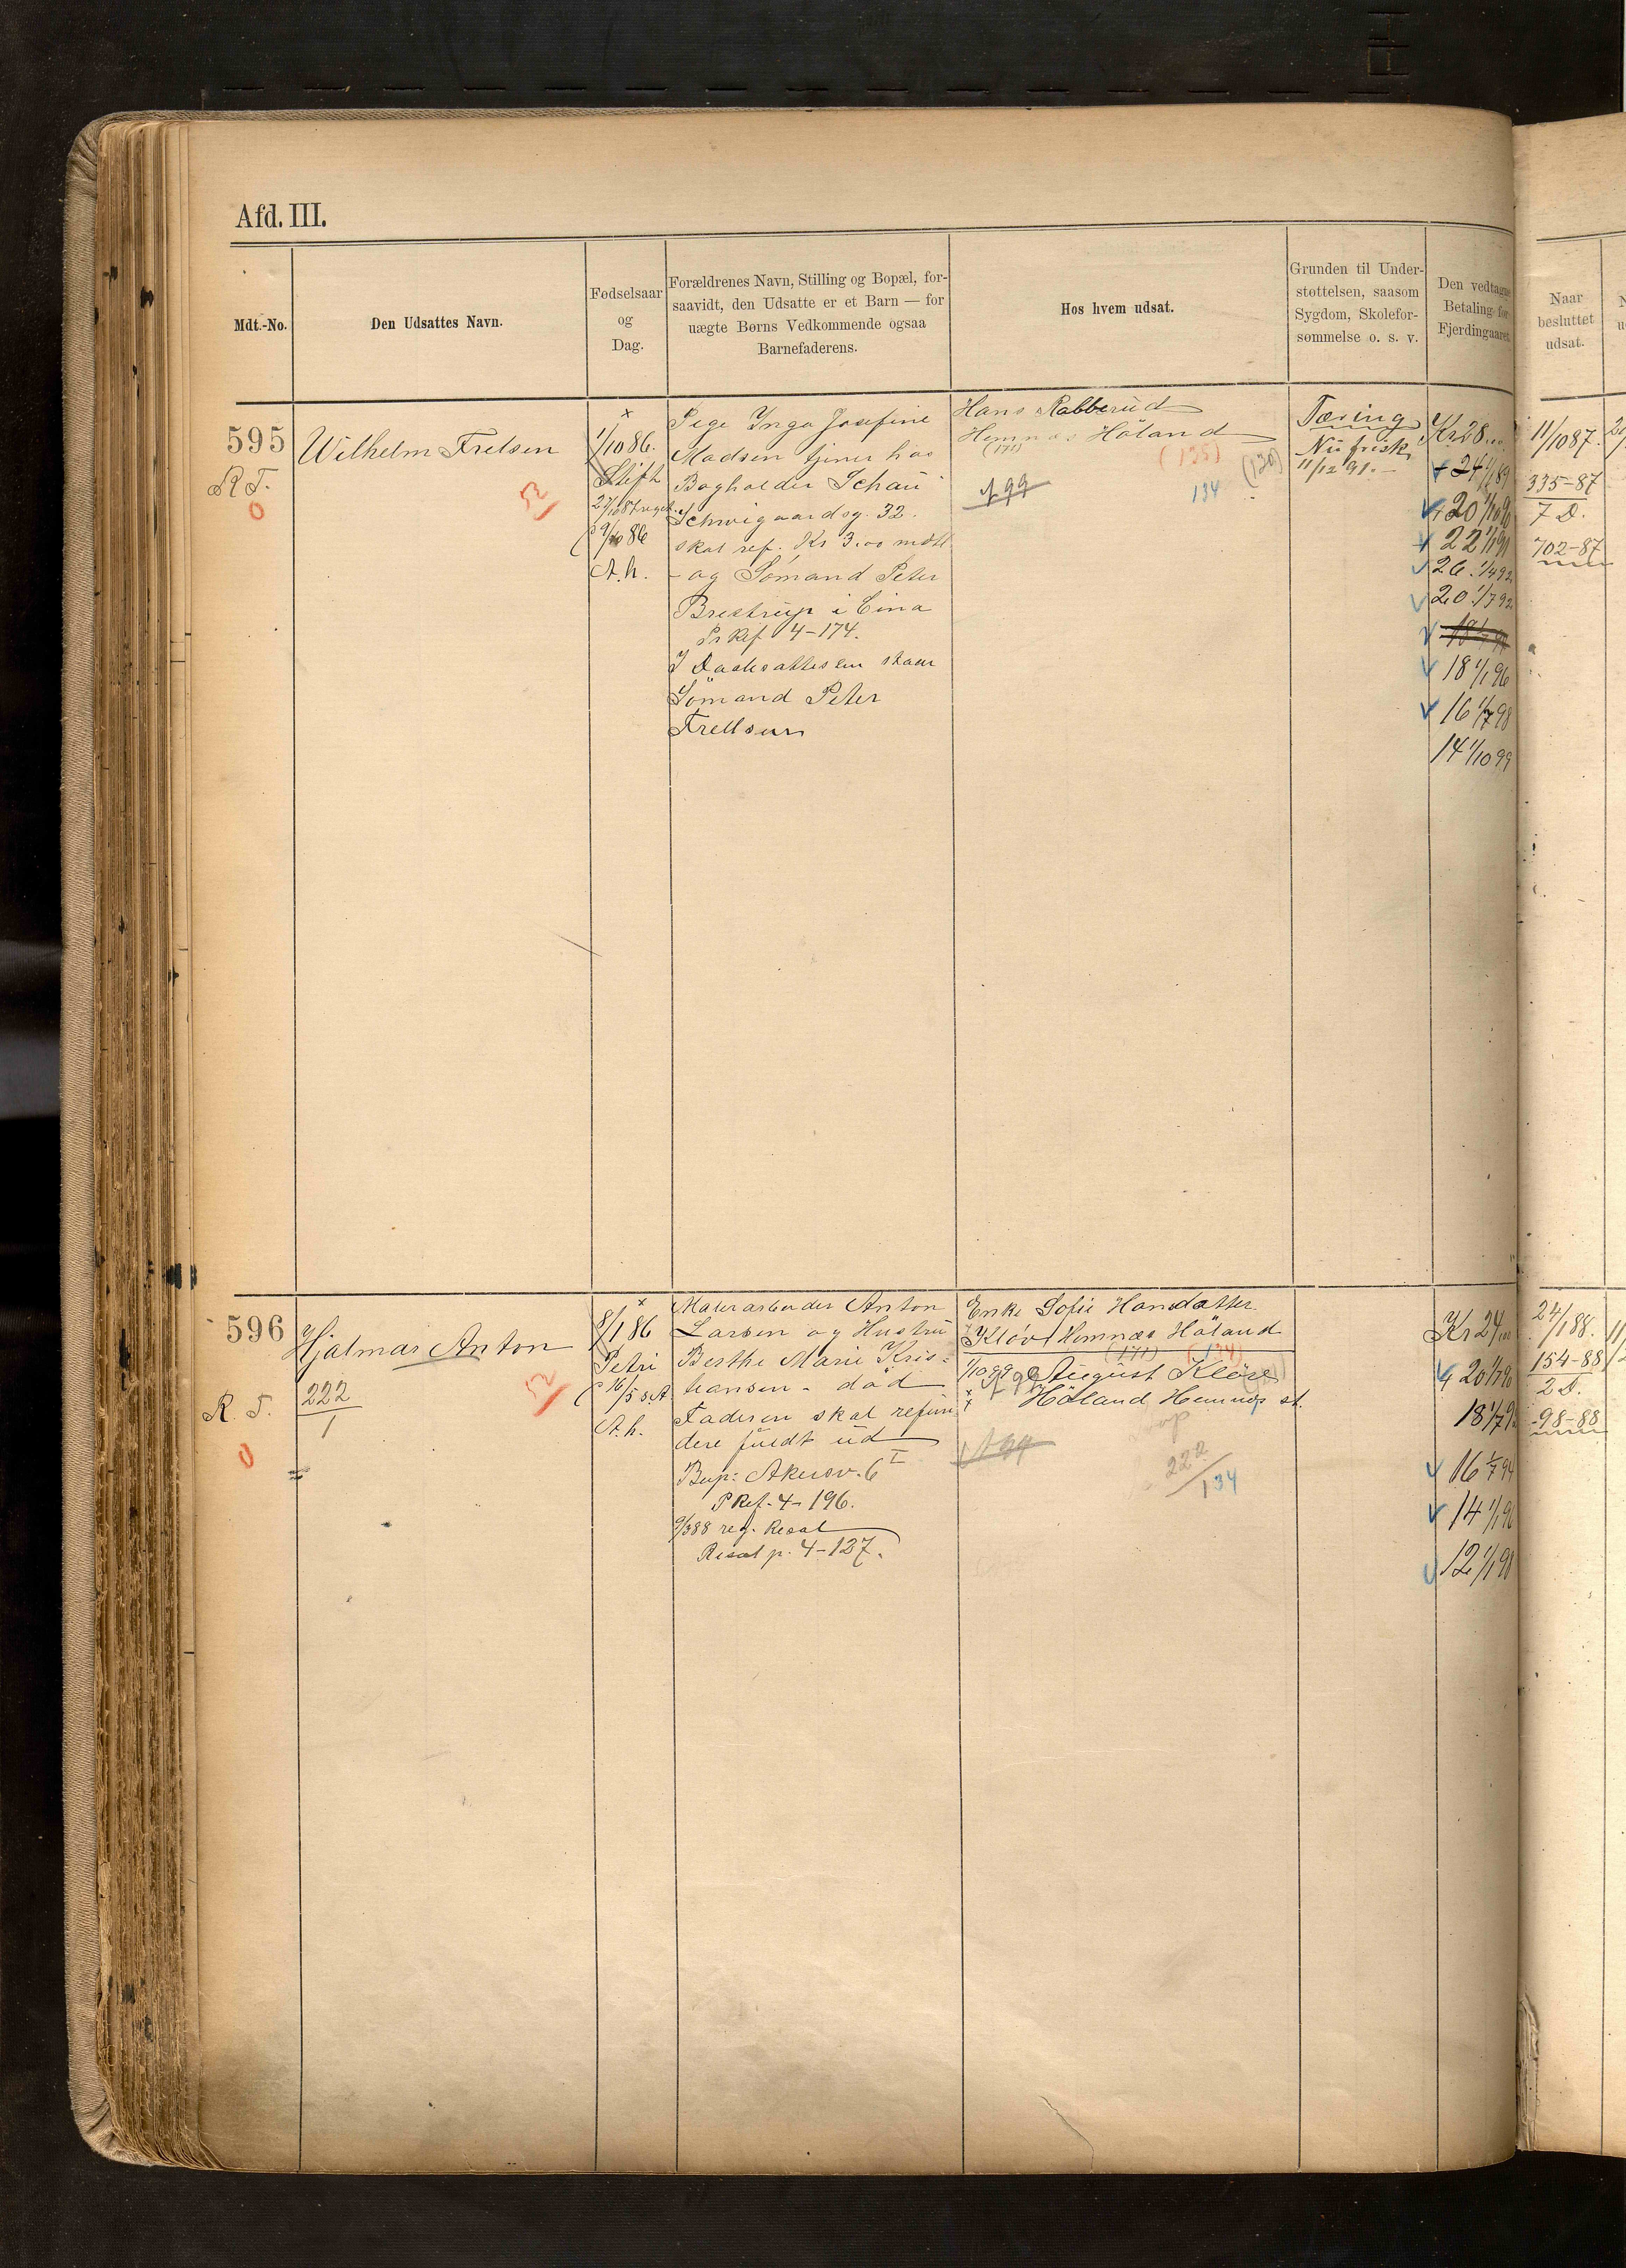 Afd. III.
Mdt.-No.
Den Udsattes Navn.
Fødselsaar
og
Dag.
Forældrenes Navn, Stilling og Bopæl, for-
saavidt, den Udsatte er et Barn — for
uægte Børns Vedkommende ogsaa
Barnefaderens.
Hos hvem udsat.
Grunden til Under-
støttelsen, saasom
Sygdom, Skolefor-
sømmelse o. s. v.
Den vedtagne
Betaling for
Fjerdingaaret.
Naar
besluttet
udsat.
595
R T.
0
Wilhelm Frelsen
1/10 86.
Stift
9/10 86
A. h.
Pige Inga Josefine
Madsen tjener hos
Bogholder Schau
Schweigaardsg. 32.
skal ref. Kr 3.00 mdtl
- og Sömand Peter
Brextrup i Cina
Pr Ref 4-174.
I Daabsattesten staar
Sömand Peter
Frellsen
Hans Rabberud
Hemnæs Höland
(171)
(135)
(130)
134
A 99
Tæring
Nu frisk
11/12 91.-
Kr 28.00
24 1/1 89
20 1/10 90
22 1/1 91
26. 1/4 92
20 1/7 92
18 1/1 96
16 1/7 98
14 1/10 99
11/10 87.
335-87
7 D.
702-87
596
R. T.
0
Hjalmar Anton
222
1
8/1 86
Petri
16/5 s.A.
A. h.
Malerarbeider Anton
Larsen og Hustru
Berthe Marie Kris-
tiansen - död
Faderen skal refun-
dere fuldt ud
Bop: Akersv. 6 I
P Ref. 4-196.
9/3 88 reg. Resol
Resol p. 4-127.
Enke Sofie Hansdatter
Kløv Hemnæs Höland
(171)
(134)
1/10 99 August Klöve
Höland Hemnæs st.
A 99
222
134
Kr 24.00
20 1/7 90
18 1/7 92
16 1/7 94
14 1/1 96
12 1/1 98
24/1 88.
154-88
2 D.
98-88